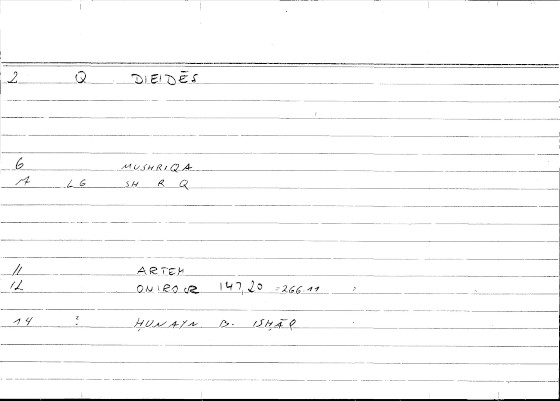 2 Q DIEIDĒS
6 MUSHRIQA
7 LG SH R Q
11 ARTEM
12 ONIROCR 147,20 = 266.11
14 ? ḤUNAYN B. ISḤĀQ